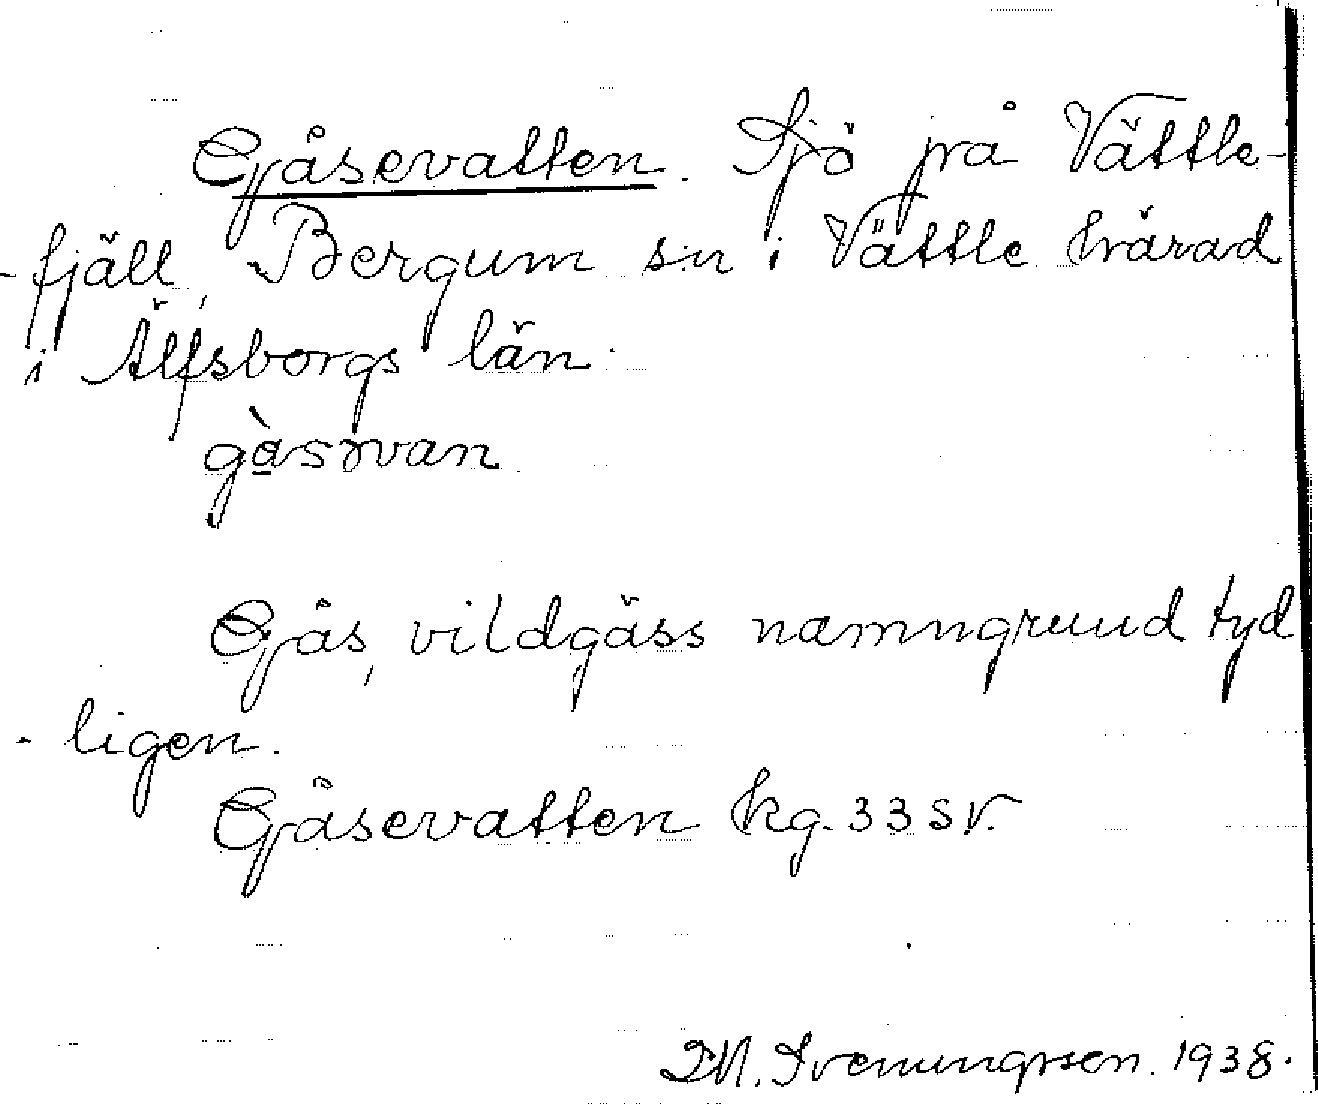 Gåsevatten. Sjö på Vättle-
-fjäll, Bergum sn i Vättle härad
i Älfsborgs län.
gàsəvan
Gås, vildgäss namngrund tyd
- ligen.
Gåsevatten kg. 33 SV.
Svenungsson. 1938.